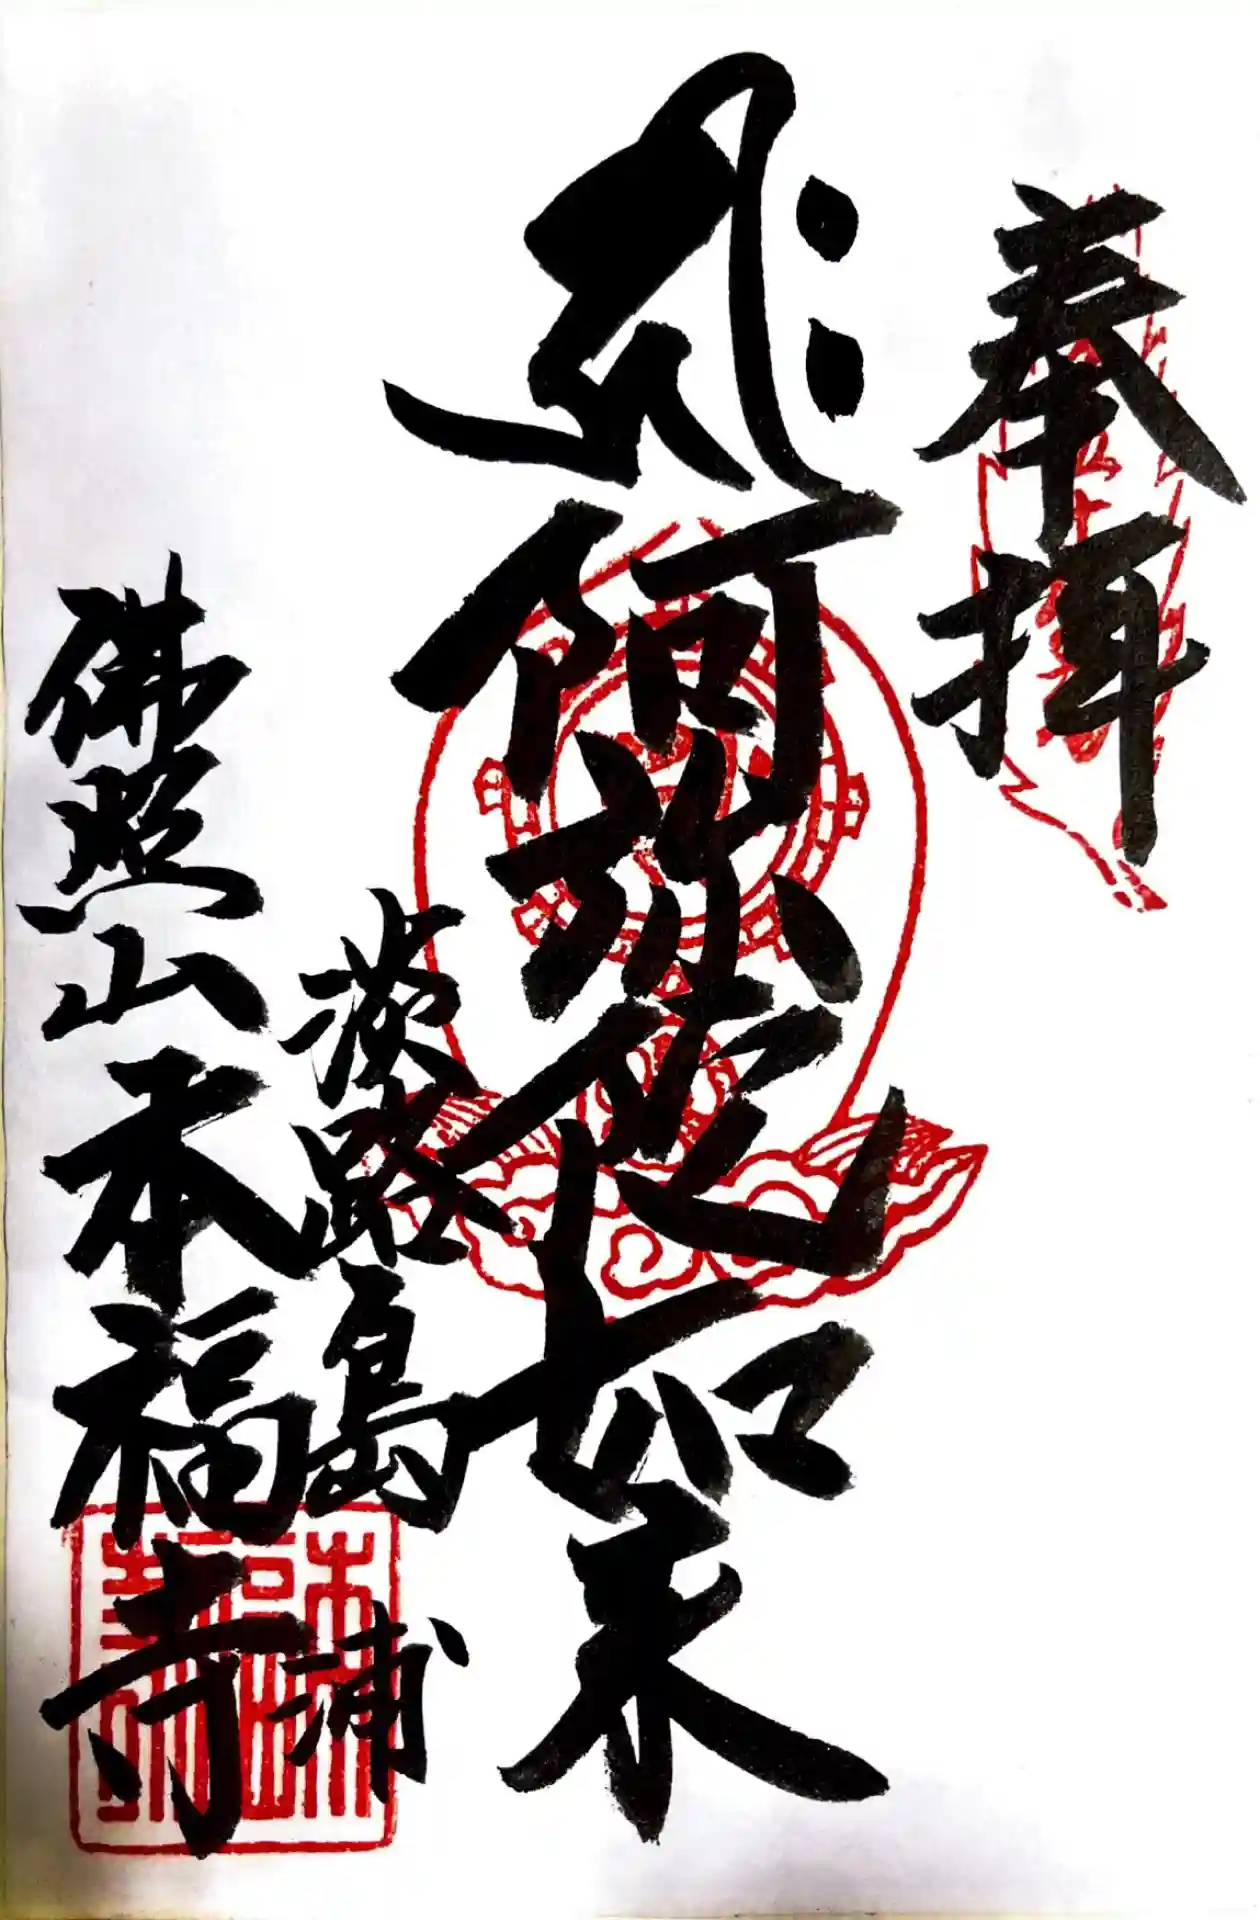 奉拝
𑖮𑖿𑖨𑖱𑖾
阿弥陀如来
淡路島 浦
佛照山本福寺